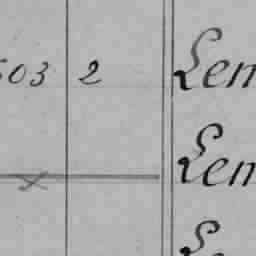 503 2 Lem
Lem